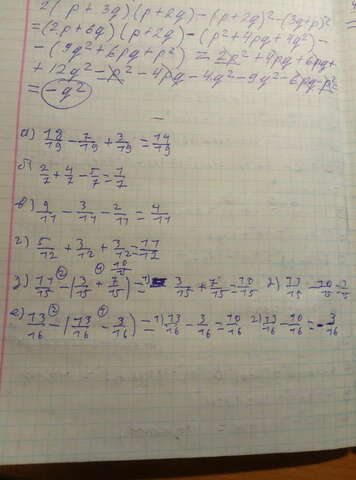 2(p+3q)(p+2q)-(p+2q)²-(3q+p)²
=(2p+6q)(p+2q)-(p²+4pq+4q²)-
-(9q²+6pq+p²)=2p²+4pq+6pq+
+12q²-p²-4pq-4q²-9q²-6pq-p²=
=-q²
а) 18/19-7/19+3/19=14/19
б) 2/7+4/7-5/7=1/7
в) 9/11-3/11-2/11=4/11
г) 5/12+3/12+3/12=11/12
10/15
д) 11/15-(3/15+7/15)=1) 3/15+7/15=10/15 2) 11/15-10/15=1/15
е) 13/16-(13/16-3/16)=1) 13/16-3/16=10/16 2) 13/16-10/16=-3/16